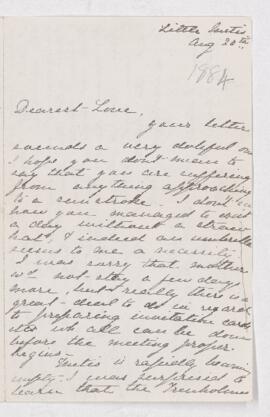 Little Metis
Aug 20th
1884
Dearest Love,
your letter
sounds a very doleful one
I hope you don't mean to
say that you are suffering
from anything approaching
to a sunstroke. I don't
how you managed to exist
a day without a straw
hat, & indeed an umbrella
seems to me a necessity.
I was sorry that mother
wd not stay a few days
more, but really there is a
great-deal to do in regard
to preparing invitation cards
etc wh all can be done
before the meeting proper
begins—
Metis is rapidly becoming
empty. I was surprised to
learn that the Trenholmes